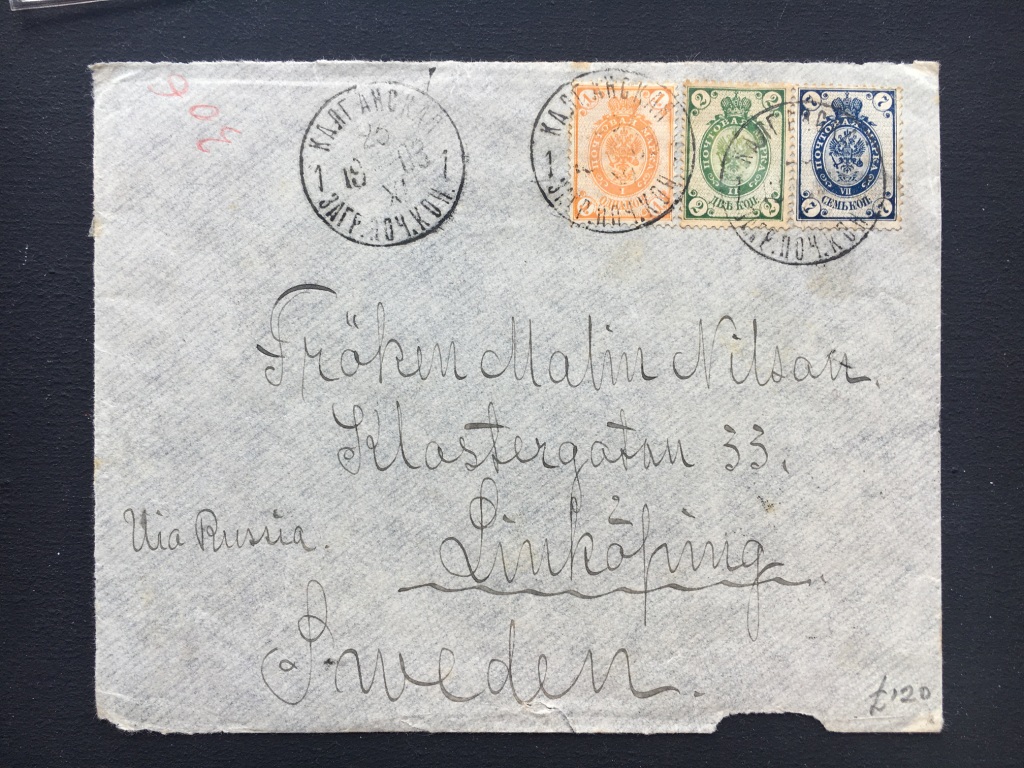 КАЛГАНСКАЯ
25
19 03
X
1 1
ЗАГР.ПОЧ.КОН
КАЛГАНСКАЯ
1
ЗАГР.ПОЧ.КОН
ПОЧТОВАЯ МАРКА
1
2 2
ПОЧТОВАЯ МАРКА
II
2 ДВѢ КОП. 2
7 7
ПОЧТОВАЯ МАРКА
VII
7 СЕМЬ КОП. 7
ПОЧ.КОН
Fröken Malin Nilson.
Klostergatan 33.
Via Russia.
Linköping
Sweden.
£120